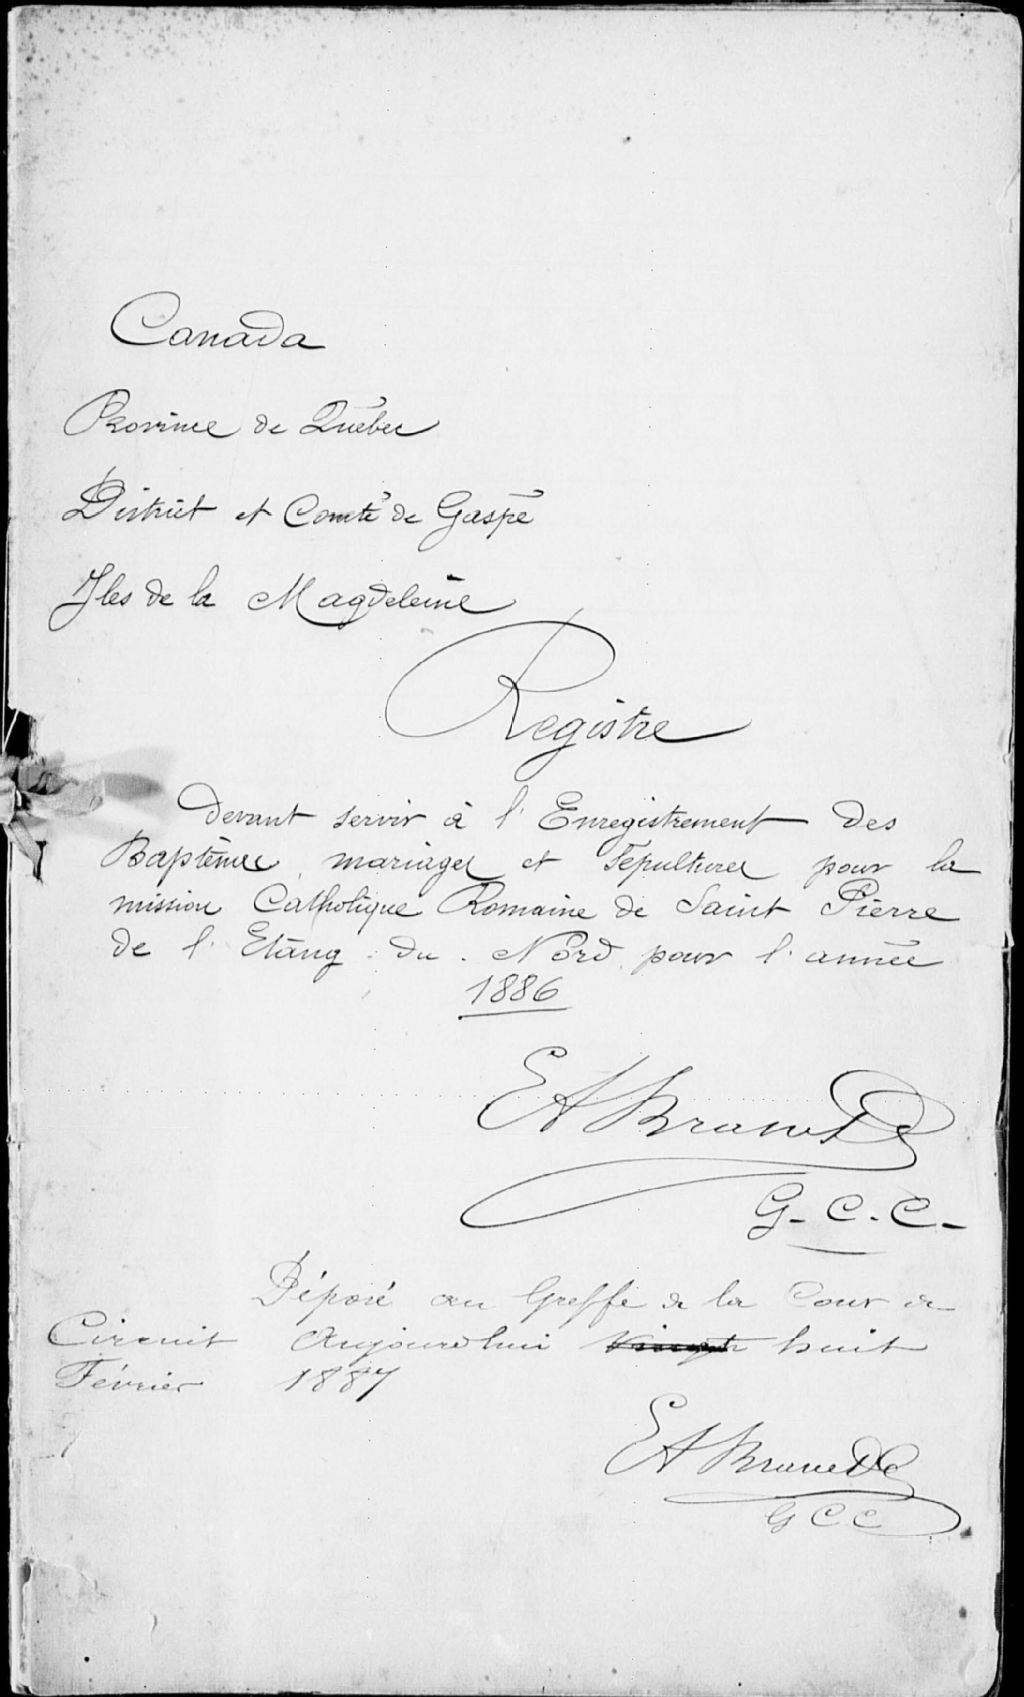 Canada
Province de Québec
District et Comté de Gaspé
Iles de la Magdeleine
Registre
devant servir à l'Enregistrement des
Baptêmes, mariages et Sépultures pour la
mission Catholique Romaine de Saint Pierre
de l'Etang du Nord pour l'année
1886
G. C. C.
Déposé au Greffe de la Cour de
Circuit Aujourdhui vingt huit
Février 1887
G C C